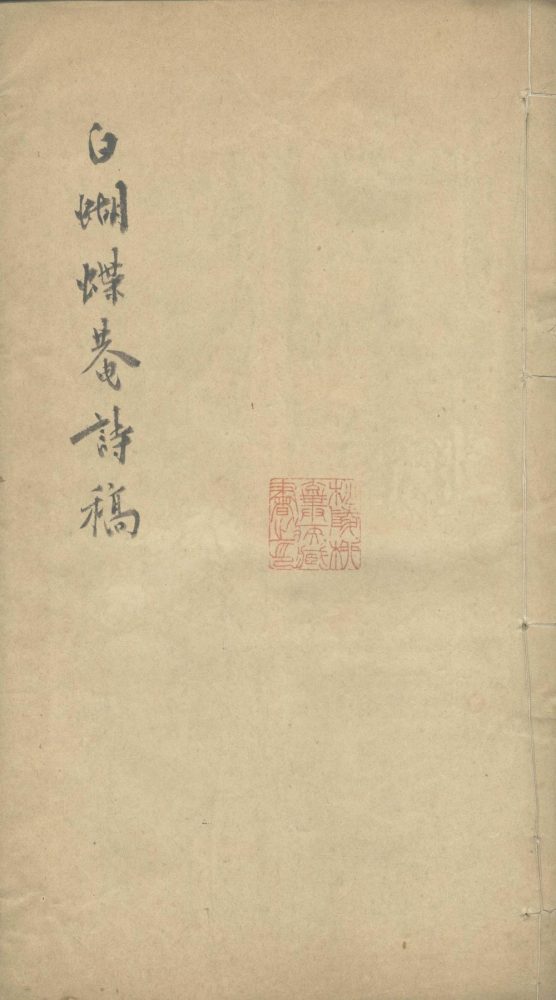 白蝴蝶菴詩稿